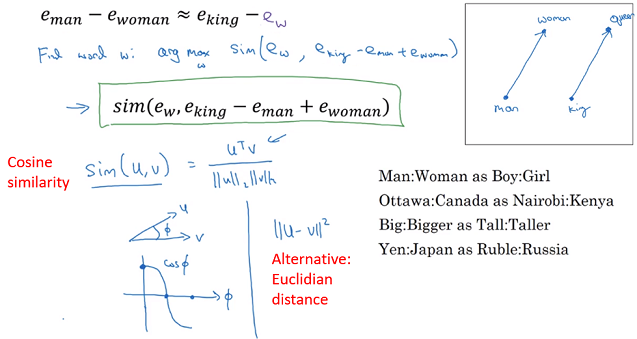 e_man − e_woman ≈ e_king − e_w
Find word w: arg max_w sim(e_w, e_king − e_man + e_woman)
→ sim(e_w, e_king − e_man + e_woman)
Cosine
similarity
sim(u, v) = uᵀv / ||u||₂||v||₂
u
ϕ
v
cos ϕ
ϕ
||u − v||²
Alternative:
Euclidian
distance
woman
queen
man
king
Man:Woman as Boy:Girl
Ottawa:Canada as Nairobi:Kenya
Big:Bigger as Tall:Taller
Yen:Japan as Ruble:Russia